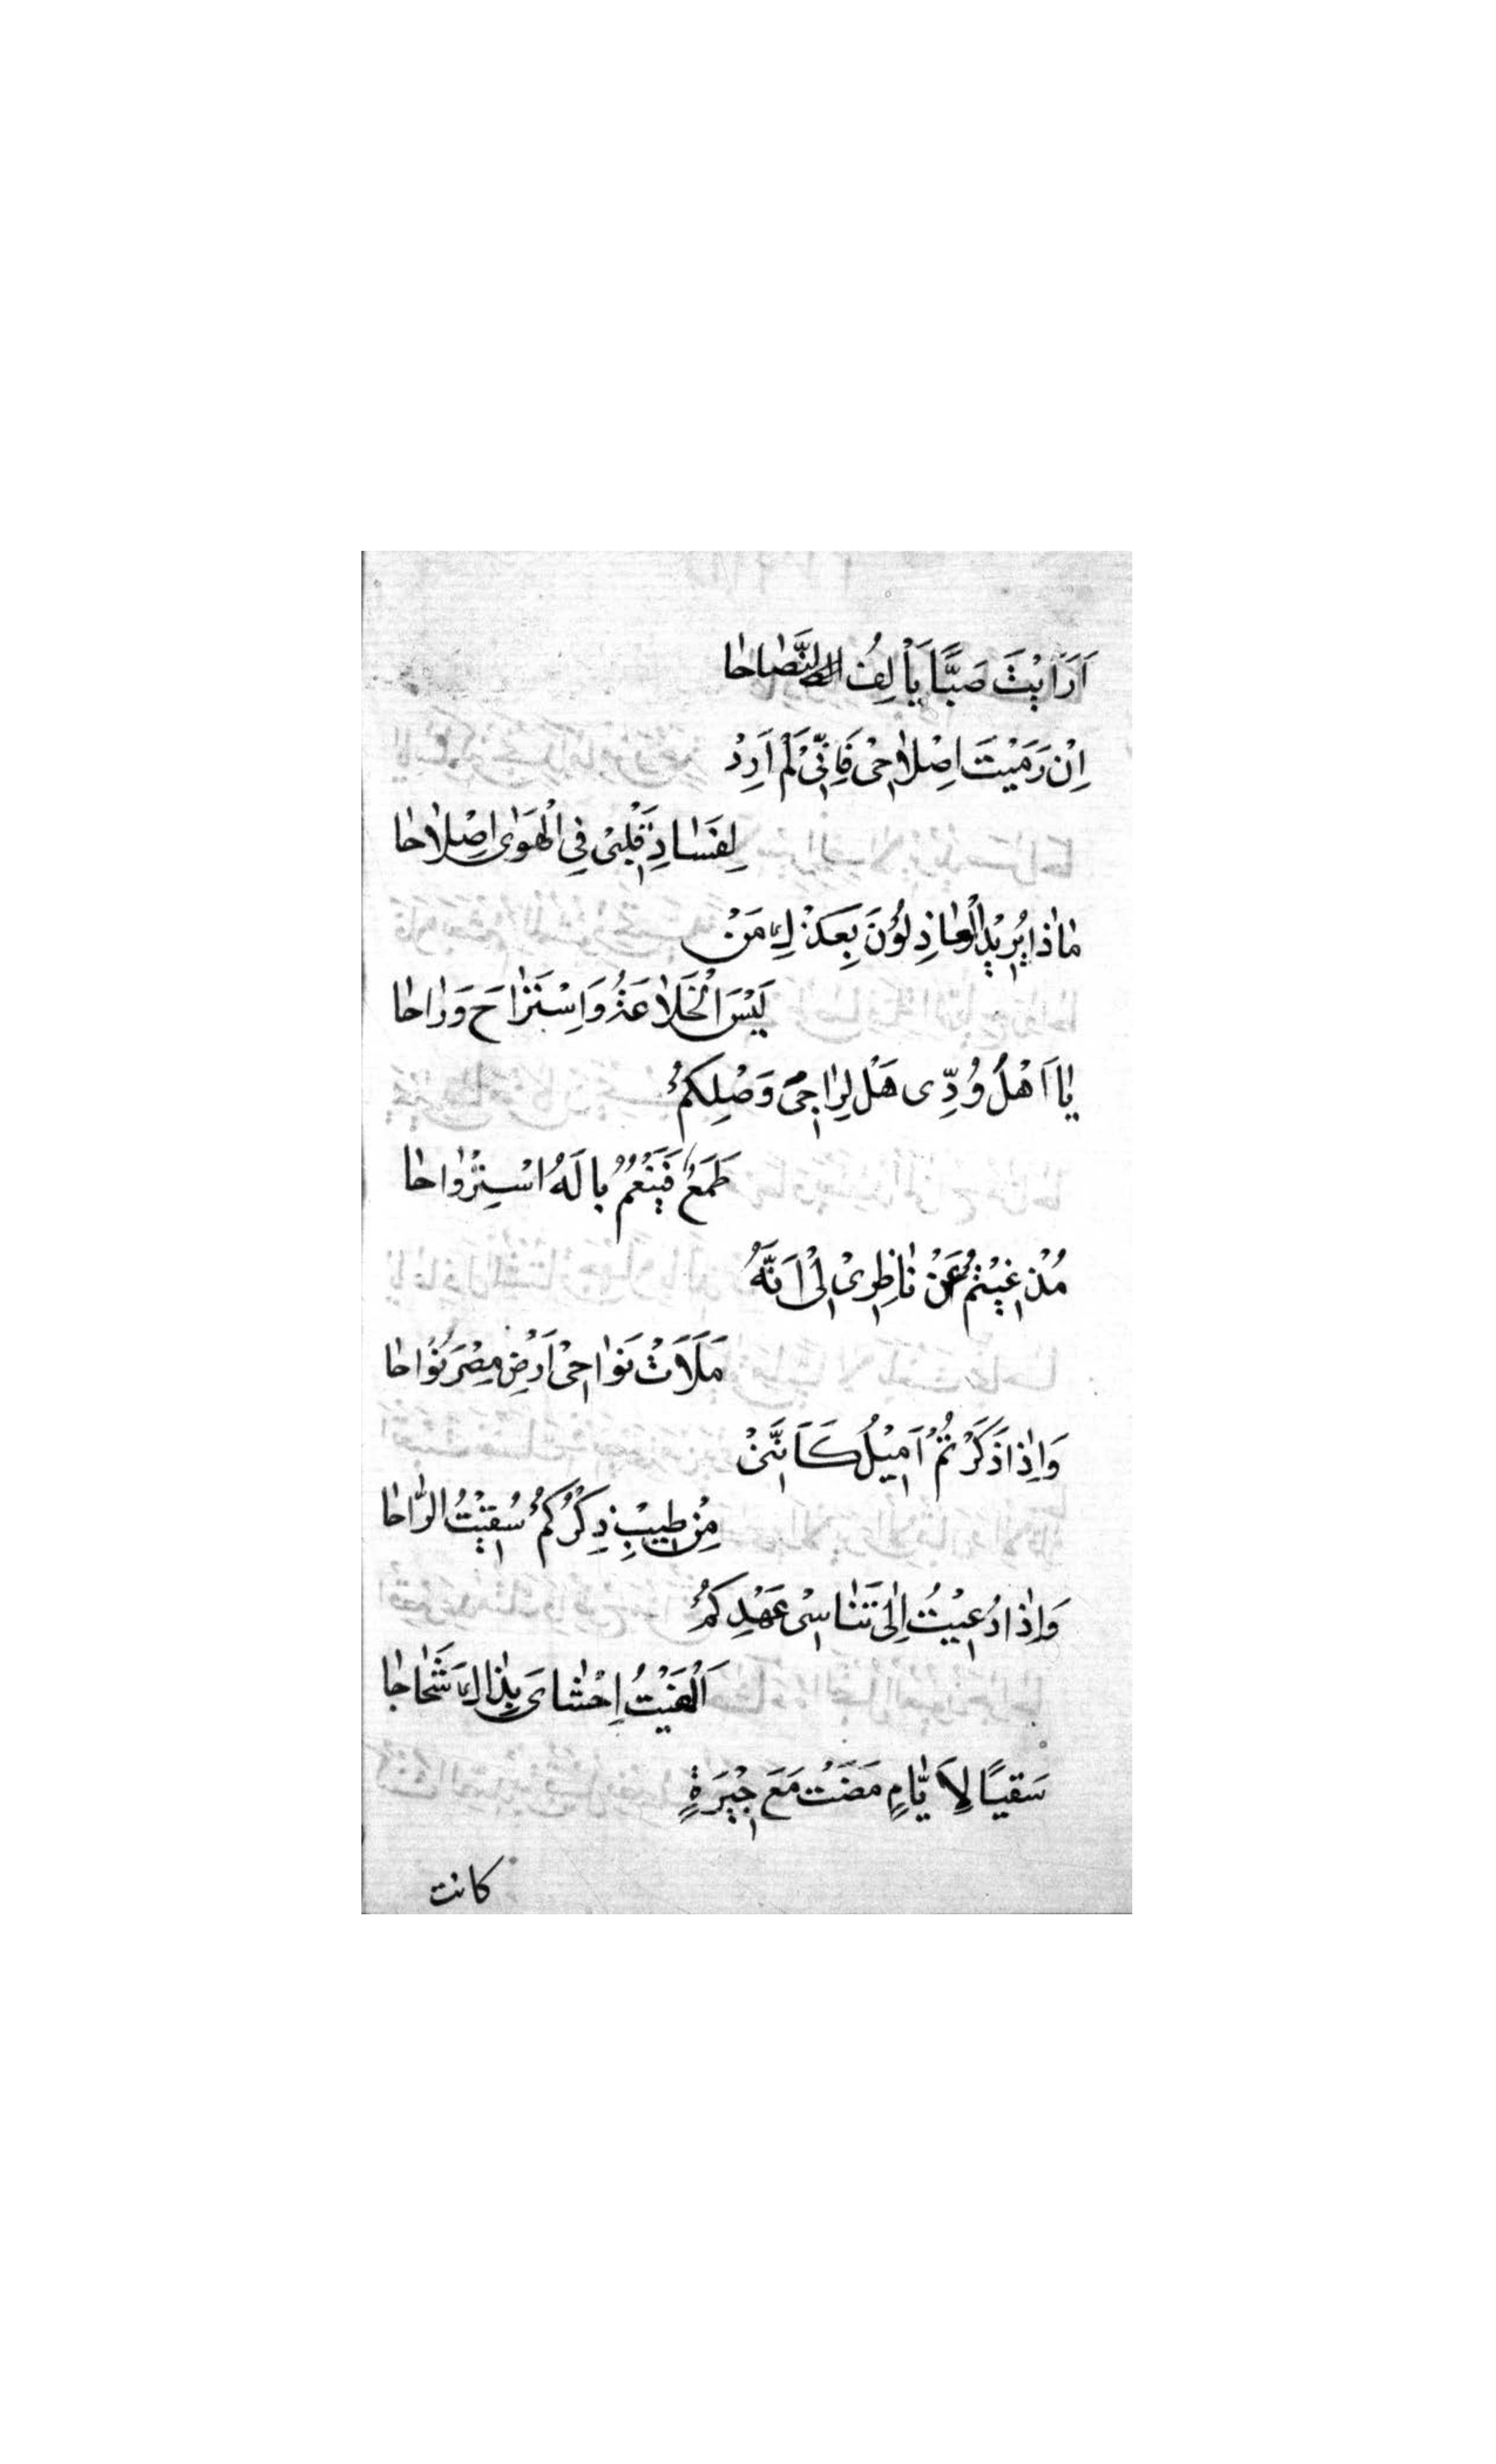 اَرَاَيْتَ صَبًّا يَأْلِفُ النَّصَّاحا
اِنْ رَمَيْتَ اِصْلاحِيْ فَاِنِّيْ لَمْ اَرِدْ
لِفَسَادِ قَلْبِيْ فِي الْهَوٰى اِصْلاحا
مٰاذا يُرِيْدُ الْعٰاذِلُوْنَ بِعَذْلِ مَنْ
لَبِسَ الْخَلاعَةُ وَاِسْتَرٰاحَ وَرٰاحا
يٰا اَهْلُ وُدِّى هَلْ لِرٰاجِىْ وَصْلِكُمْ
طَمَعٌ فَيَنْعُمُ بالَهُ اسْتِرْوٰاحا
مُذْ غِبْتُمُ عَنْ نٰاظِرِىْ لِىْ اَنَّهُ
مَلَاَتْ نَوٰاحِىْ اَرْضِ مِصْرَ نُوٰاحا
وَاِذٰا ذَكَرْتُمْ اَمِيْلُ كَاَنَّنِىْ
مِنْ طِيْبِ ذِكْرُكُمْ سُقِيْتُ الرّٰاحا
وَاِذٰا دُعِيْتُ اِلٰى تَنٰاسِىْ عَهْدِكُمْ
اَلْفَيْتُ اِحْشٰاىَ بِذٰالِكَ شَحٰاحا
سَقيًا لِاَيّٰامٍ مَضَتْ مَعَ جِيْرَةٍ
كانت